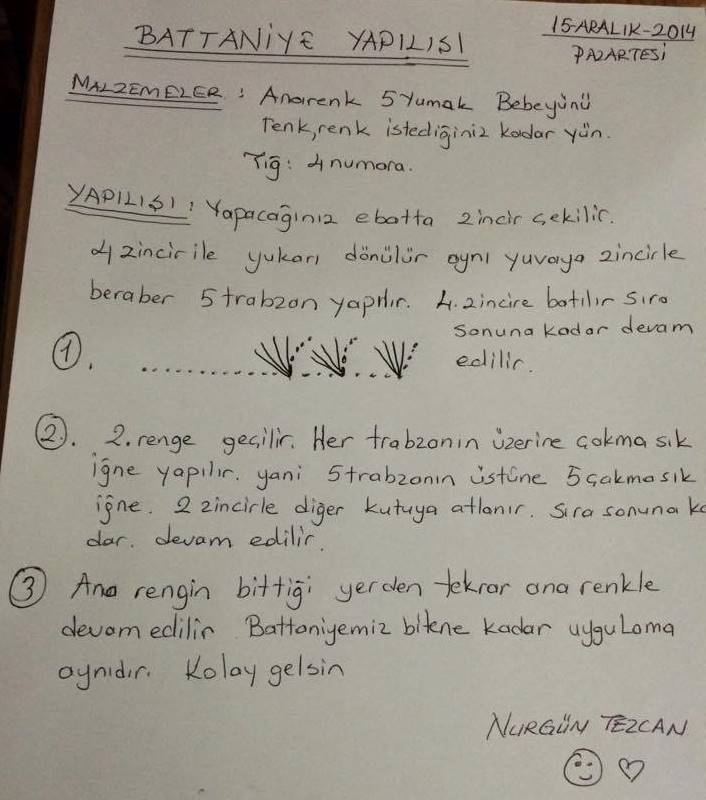 BATTANİYE YAPILIŞI
15-ARALIK-2014
PAZARTESİ
MALZEMELER : Anarenk 5 Yumak Bebeyünü
renk, renk istediğiniz kadar yün.
Tığ: 4 numara.
YAPILIŞI : Yapacağınız ebatta zincir çekilir.
4 zincir ile yukarı dönülür aynı yuvaya zincirle
beraber 5 trabzan yapılır. 4. zincire batılır sıra
sonuna kadar devam
edilir.
1.
2. 2. renge geçilir. Her trabzanın üzerine çakma sık
iğne yapılır. yani 5 trabzanın üstüne 5 çakma sık
iğne. 2 zincirle diğer kutuya atlanır. Sıra sonuna ka
dar. devam edilir.
3 Ana rengin bittiği yerden tekrar ana renkle
devam edilir Battaniyemiz bitene kadar uygulama
aynıdır. Kolay gelsin
NURGÜN TEZCAN